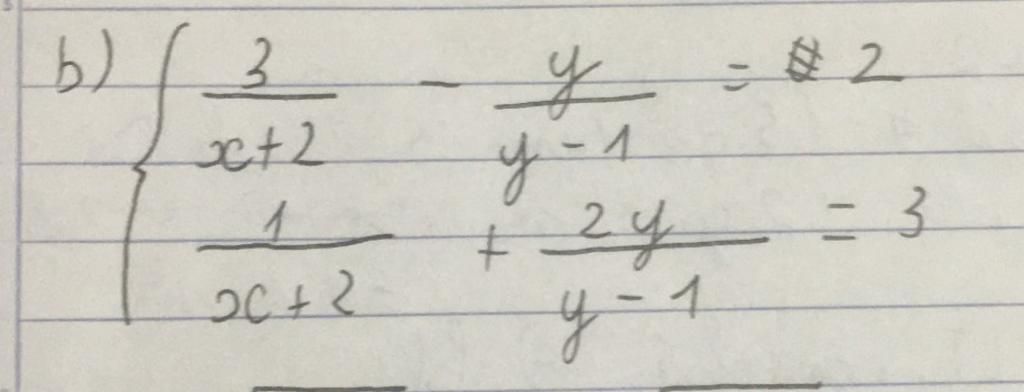 b) { 3/(x+2) - y/(y-1) = 2
1/(x+2) + 2y/(y-1) = 3